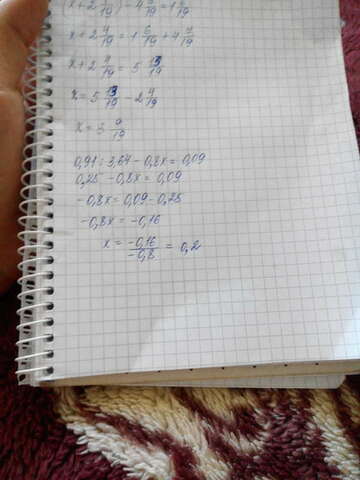 (x + 2 4/19) - 4 4/19 = 1 6/19
x + 2 4/19 = 1 6/19 + 4
x + 2 4/19 = 5 13/19
x = 5 13/19 - 2 4/19
x = 3 9/19
0,91 : 3,64 - 0,8x = 0,09
0,25 - 0,8x = 0,09
-0,8x = 0,09 - 0,25
-0,8x = -0,16
x = -0,16/-0,8 = 0,2